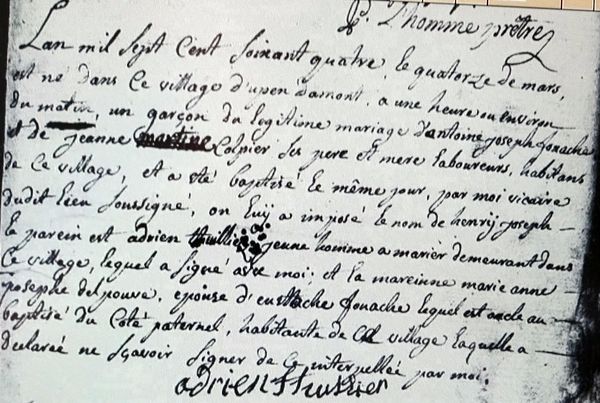 P. L'homme prêtre
Lan mil sept cent soixant quatre le quatorze de mars,
est né dans ce village d'upen damont, a une heure ou environ
du matin, un garçon du legitime mariage d'antoine joseph fouache
et de jeanne martine Calpier ses pere et mere laboureurs, habitans
de ce village, et a été baptisé le même jour, par moi vicaire
dudit lieu soussigné, on luÿ a imposé le nom de henry joseph
le parein est adrien thuillier jeune homme a marier demeurant dans
ce village, lequel a signé avec moi, et la mareinne marie anne
josephe delpouve, epouse d'eustache fouache lequel est oncle au
baptisé du coté paternel, habitante de ce village laquelle a
declareé ne sçavoir signer de ce interpelleé par moi.
adrien thuillier